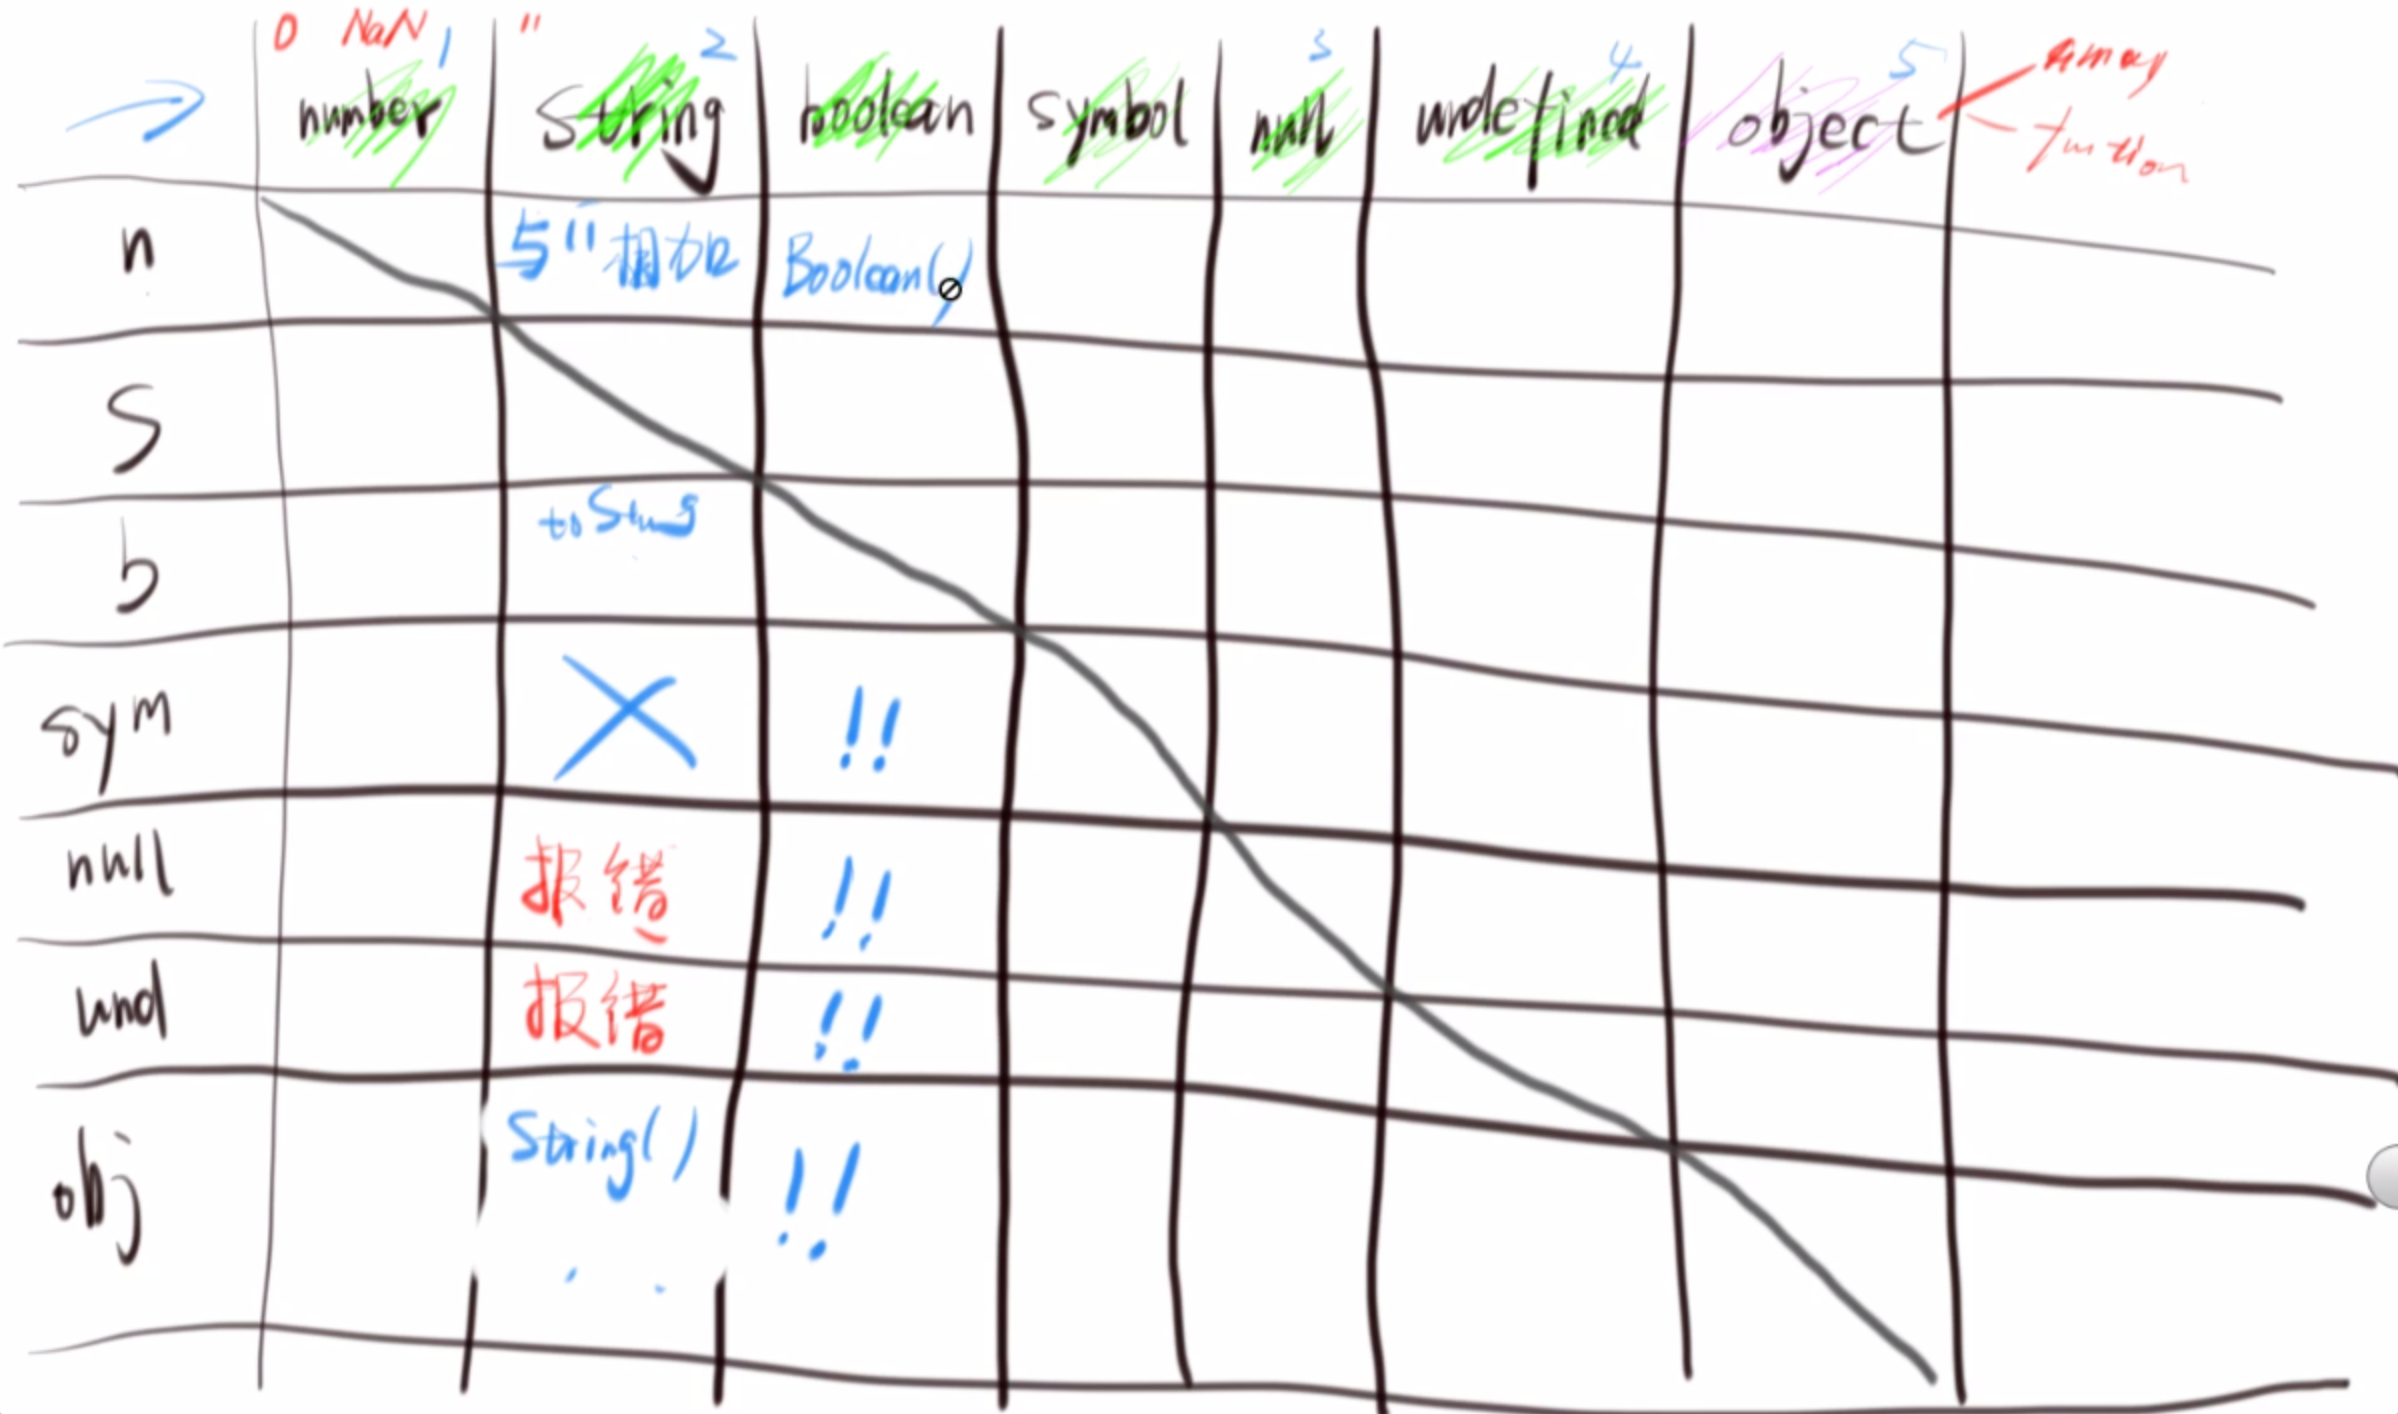 0 NaN 1 '' 2 3 4 5 array
number string boolean symbol null undefined object function
n 5 '' 相加 Boolean()
S
b toString
sym !!
null 报错 !!
und 报错 !!
obj String() !!